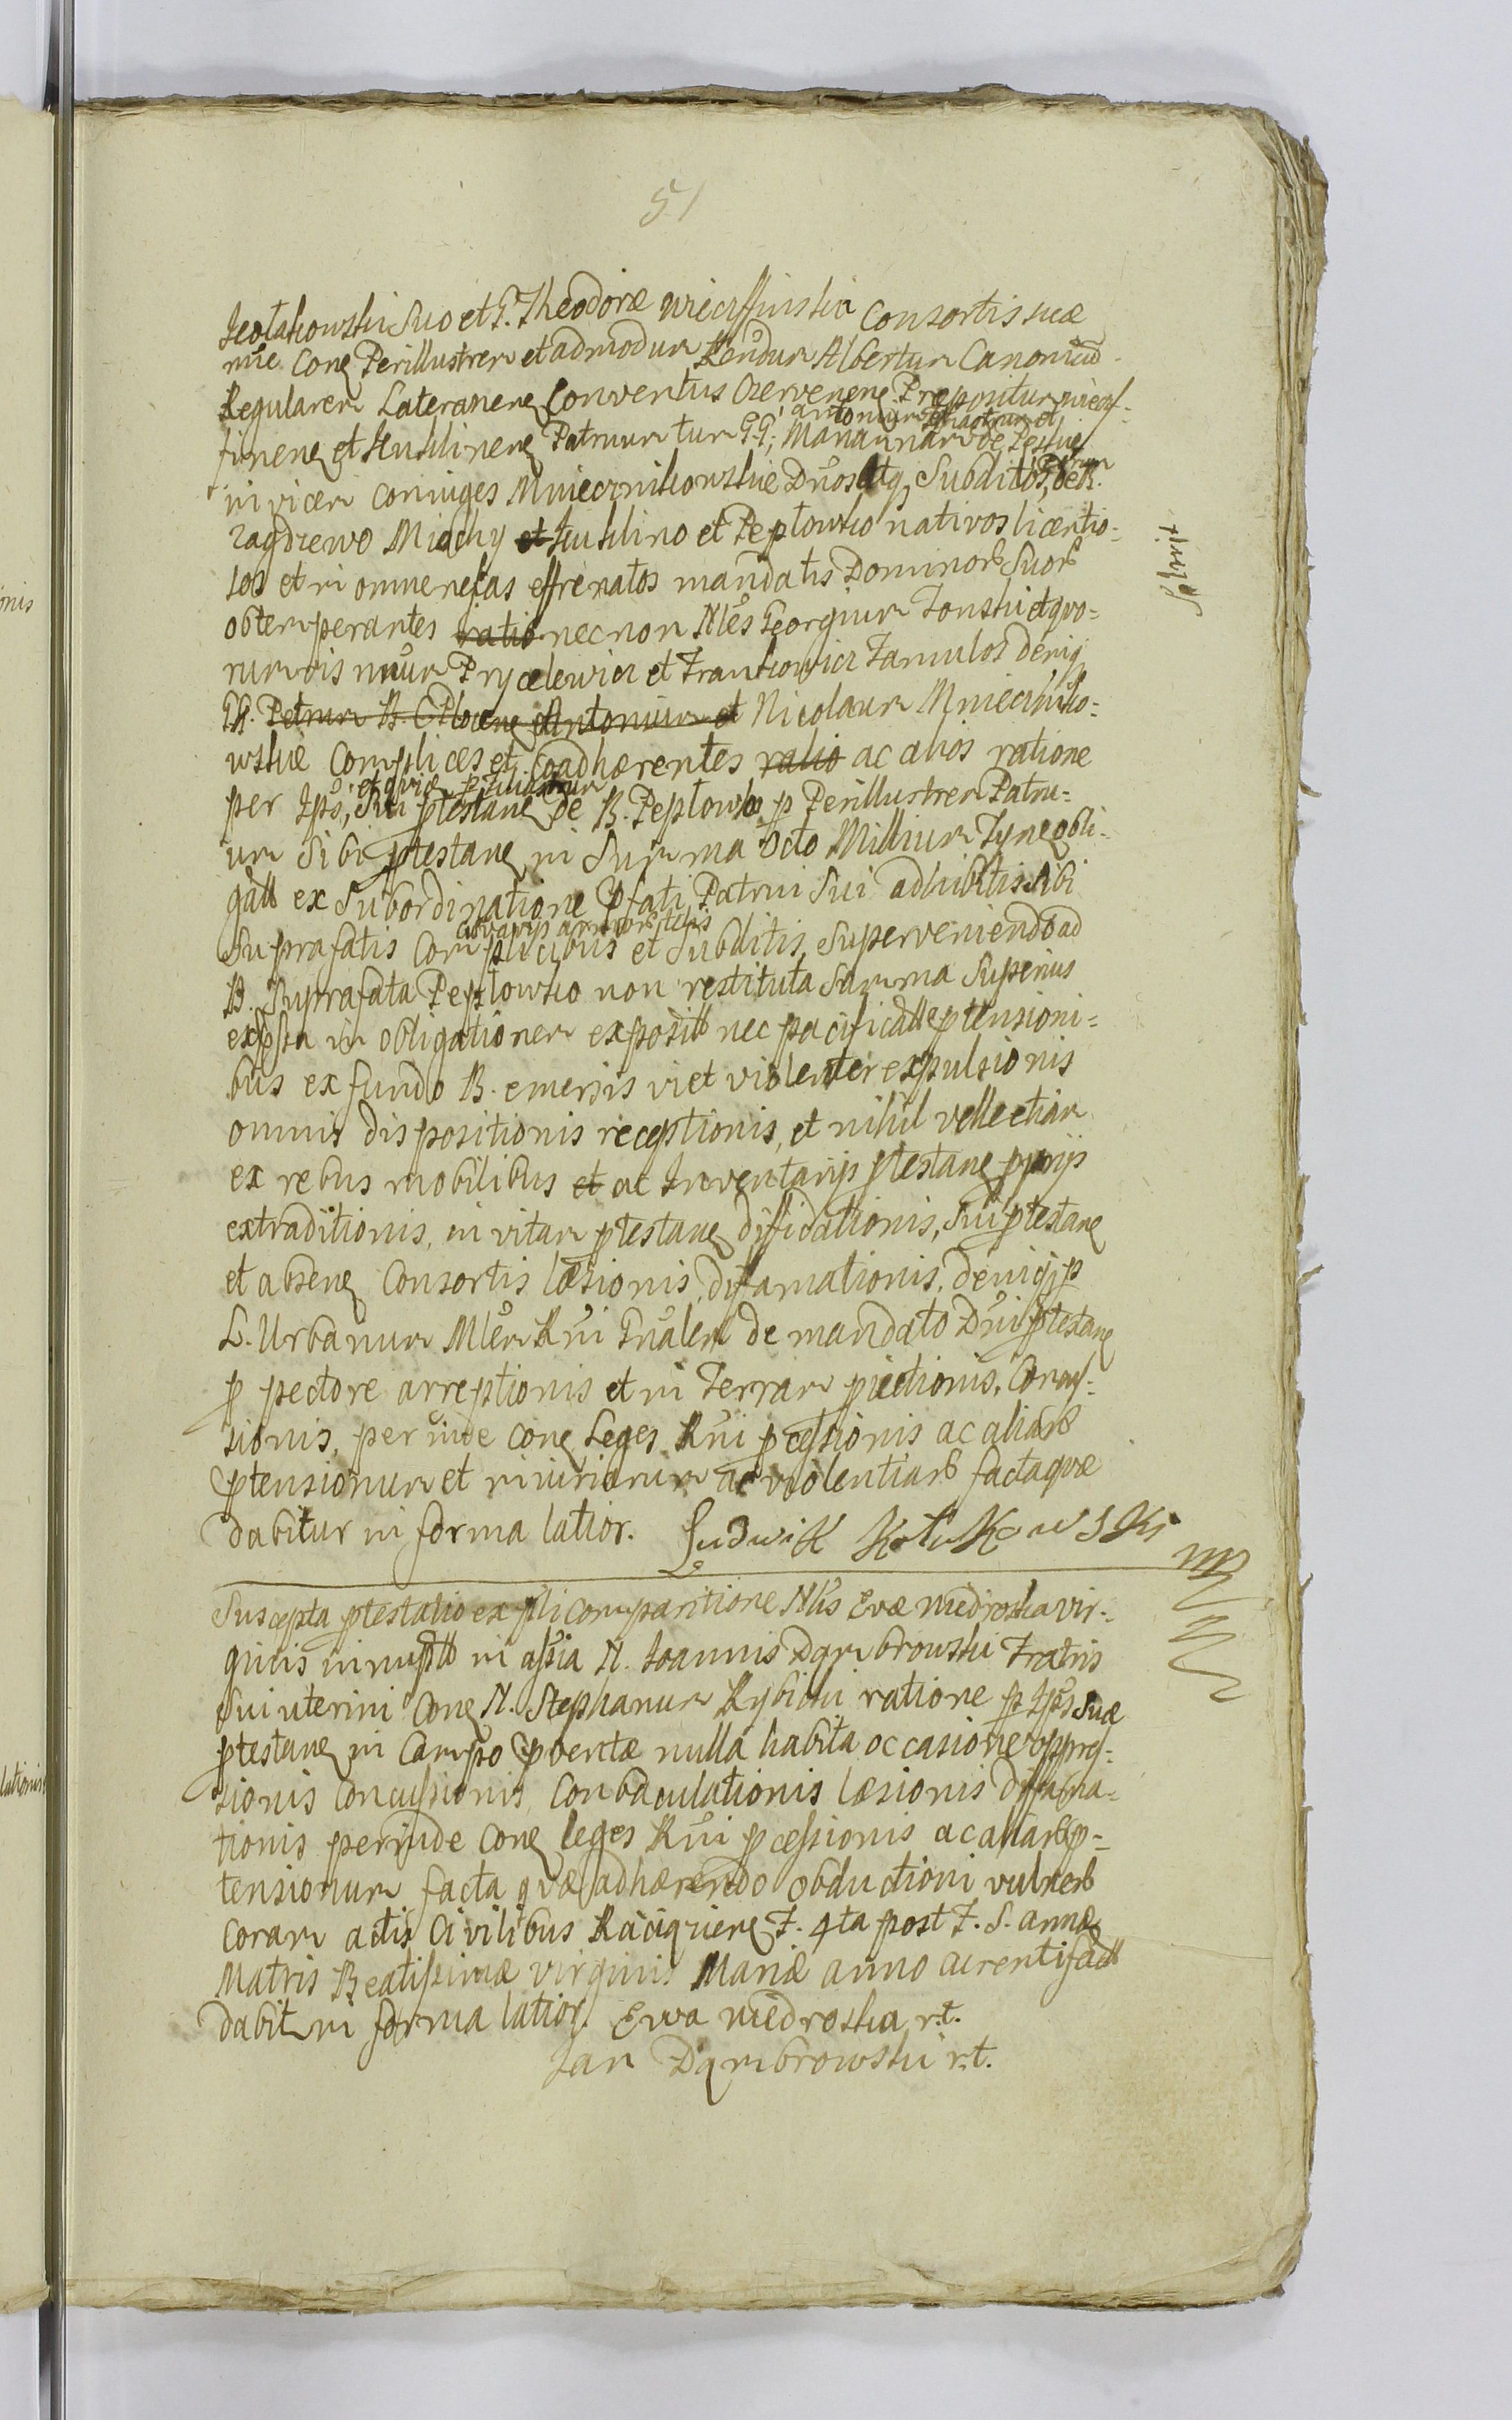 51
Kotakowski Suo et G. Theodoræ wieczffinska Consortis suæ
nne Conq Perillustrem et admodum Rendum Albertum Canonicũ
Regularem Lateranenq Conventus Czervenenq Prepositum
finenq et Patruum tum G.G. Mariannam de
antonium et
invicem coniuges Mniecznikowskie Dnos atq Subditos, de B.
Zagdzewo Miachy et et Peplowko nativos licentio=
sos et in omne nefas effrenatos mandatis Dominorb Suorb
obtemperantes ratio nec non Nles Georgium Tonski et quo=
rumvis Prycelewicz et Frankowicz Famulos deniq
GG. Petrum B. C Plocenq et Antonium et Nicolaum Mniecniko=
wskie Complices et Coadhærentes ratio ac alios ratione
per Ips, Sui ptestanq de B. Peplowko p Perillustrem Patru=
um Sibi ptestanq in Summa Octo Millium Tynf obli=
gatt ex Subordinatione pfati Patrui Sui adhibitis sibi
Suprafatis Complicibus et Subditis, Superveniendo ad
cũ varijs armorb telis
B. Suprafata Peplowko non restituta Summa Superius
exp̃ssa in obligationem exposit nec pacificatt ptensioni=
bus ex fundo B. emersis vi et violenter expulsionis
omnis dispositionis receptionis, et nihil velle etiam
ex rebus mobilibus et ac Inventarijs ptestanq pprijs
extraditionis, in vitam ptestanq diffidationis, Sui ptestanq
et absenq Consortis læsionis, difamationis, deniq p
L. Urbanum Mlem Rni Gnalem de mandato Dni ptestanq
p pectore arreptionis et in Terram piectionis, Concus=
sionis, per inde conq Leges Rni pcessionis ac aliarb
ptensionum et iniuriarum ac violentiarb facta quæ
dabitur in forma latior. Ludwik Kotakowski
Solvit
Suscepta ptestatio ex psli comparitione Nlis Evæ niedroska vir=
ginis innuptt in assia N. Joannis Dambrowski Fratris
Sui uterini Conq N. Stephanum Rybicki ratione p Ips Suæ
ptestanq in Campo pventæ nulla habita occasione oppres=
sionis concussionis, Conbaculationis læsionis diffama=
tionis perinde Conq leges Rni pcessionis ac aliarb p=
tensionum facta quæ adhærendo obductioni vulnerb
coram actis Civilibus Raciązienq F. 4ta post F. S. annæ
Matris Beatissimæ virginis Mariæ anno currenti fact
dabitr in forma latior. Ewa niedroska r.t.
Jan Dąmbrowski r.t.